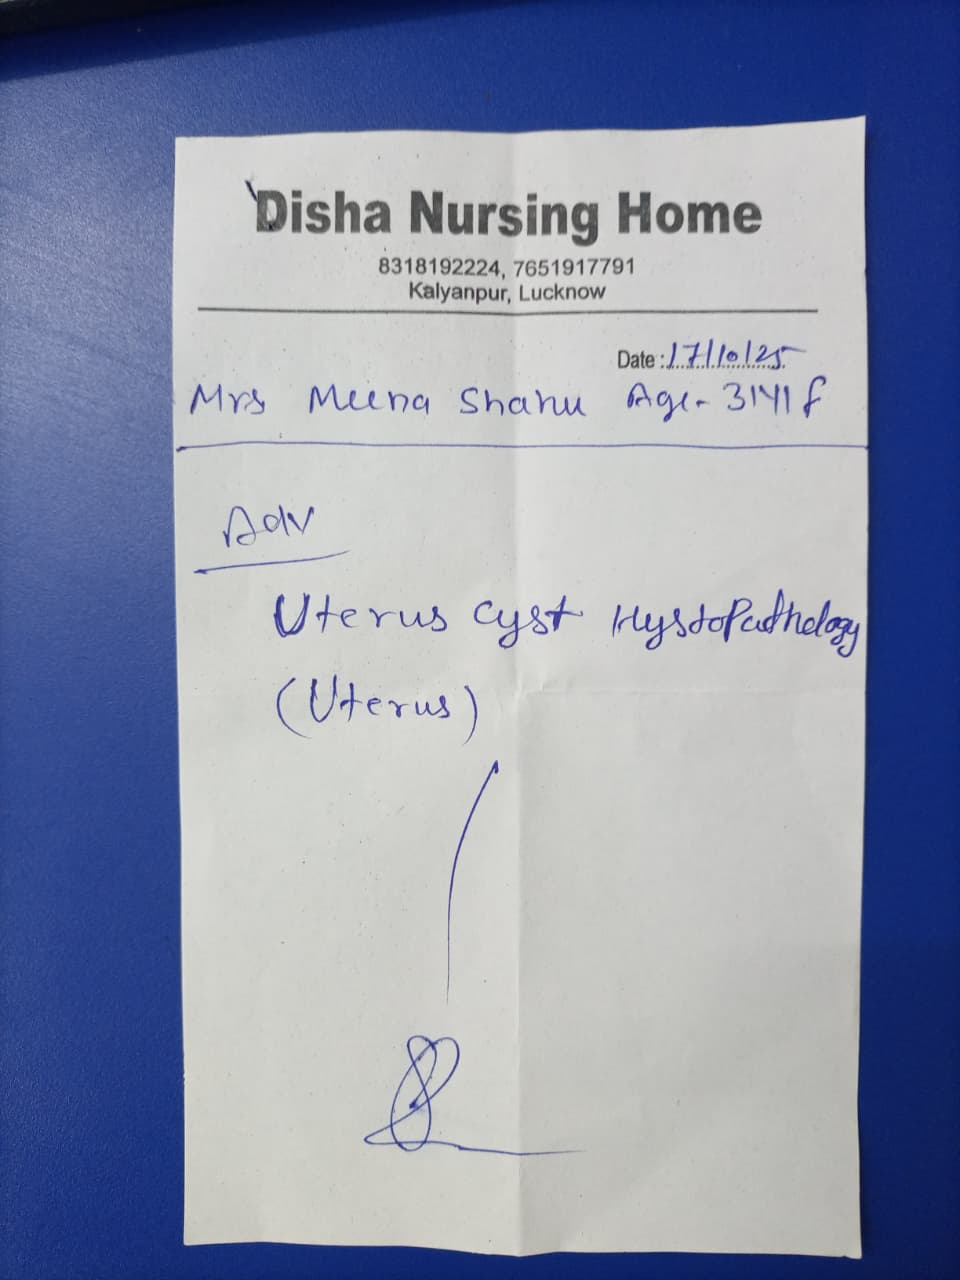 Disha Nursing Home
8318192224, 7651917791
Kalyanpur, Lucknow
Date : 17/10/25
Mrs Meena Shahu Age - 31Y/F
Adv
Uterus Cyst Hystopathology
(Uterus)